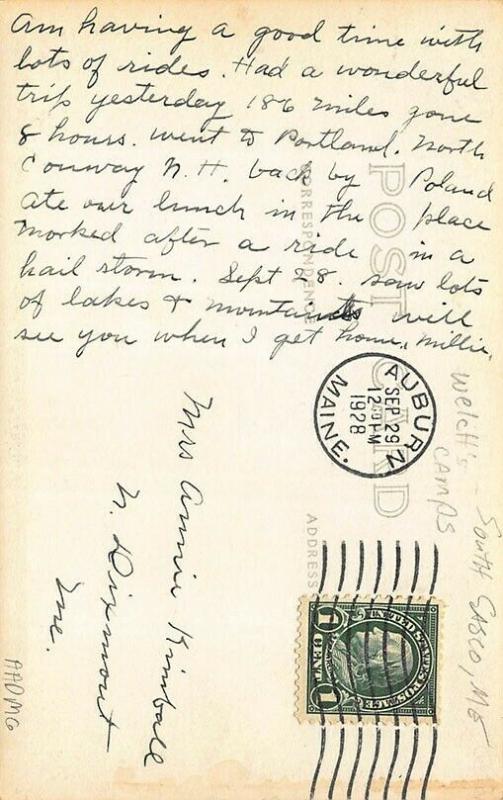 Am having a good time with
lots of rides. Had a wonderful
trip yesterday 186 miles gone
8 hours. went to Portland. North
Conway N.H. back by Poland
ate our lunch in the place
marked after a ride in a
hail storm. Sept 28. saw lots
of lakes & mountains will
see you when I get home. Millie.
POST CARD
CORRESPONDENCE
ADDRESS
AUBURN
SEP 29
12 30 PM
1928
MAINE.
Mrs Annie Kimball
N. Dixmont
Me.
UNITED STATES POSTAGE
1 CENT 1
Welch's Camps - South Casco, ME
AADMG